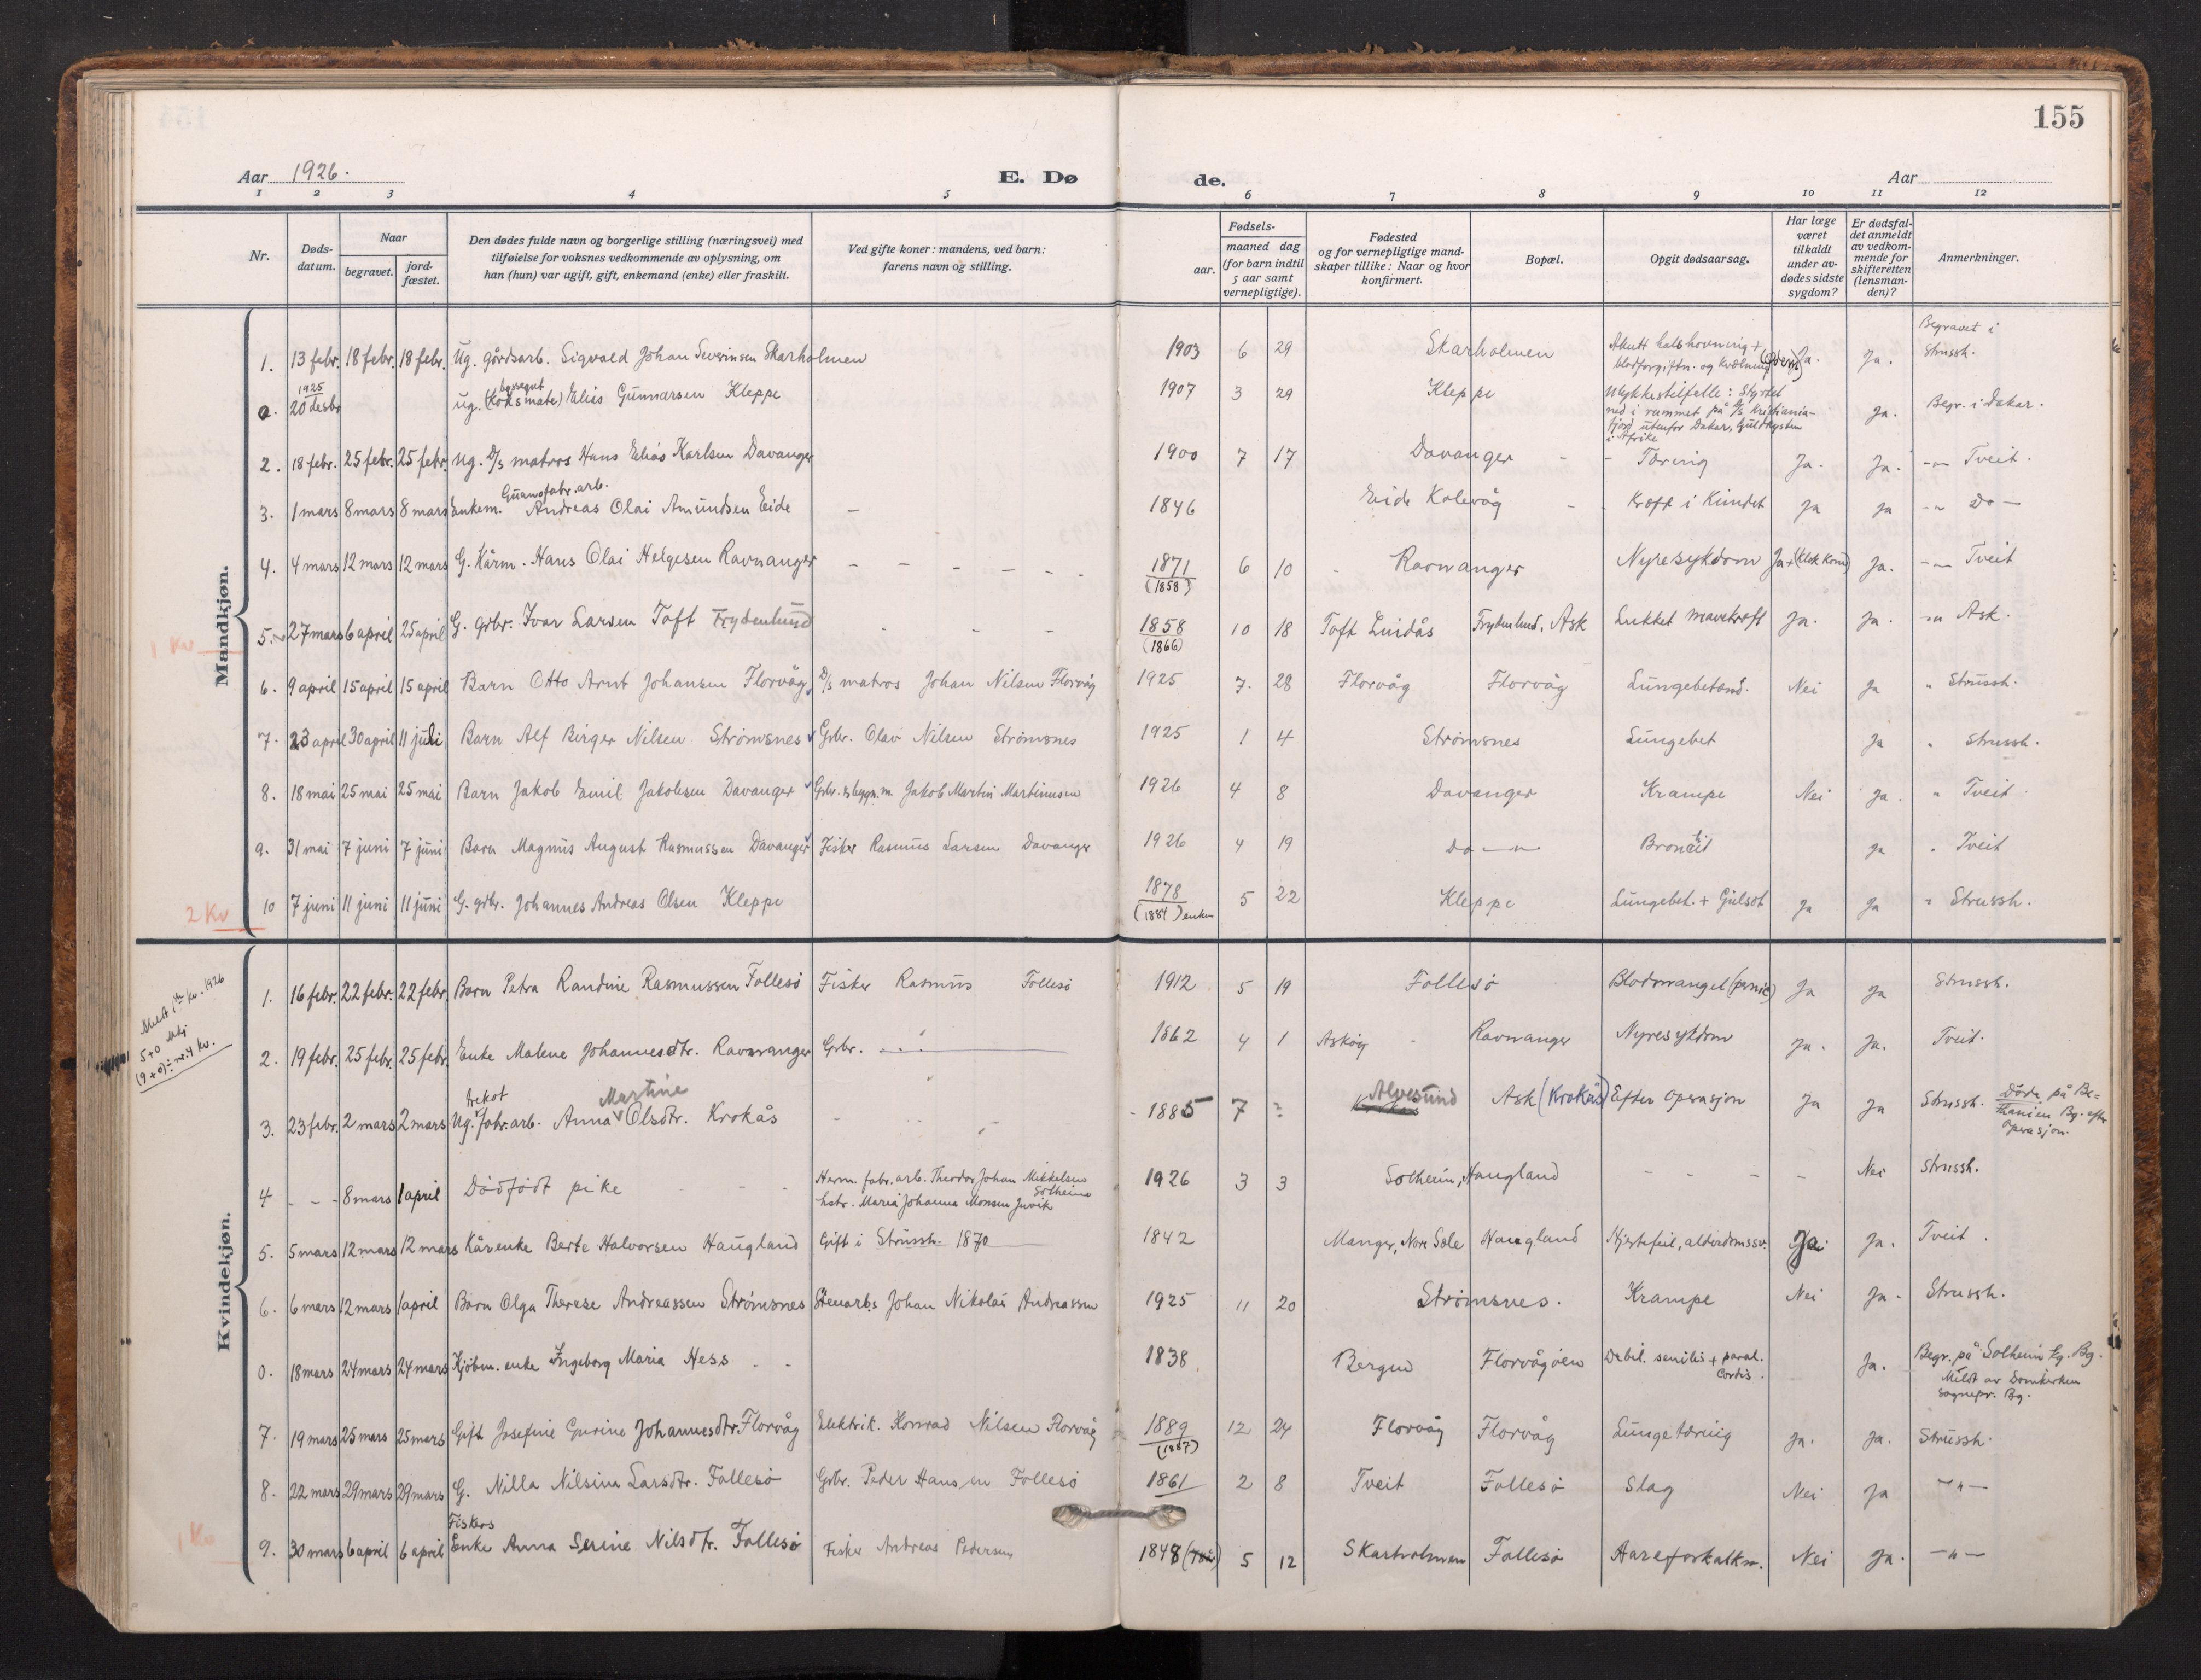 155
Aar 1926.
E. Dø
de.
Aar
1 2 3 4 5 6 7 8 9 10 11 12
Nr.
Døds-
datum.
Naar
begravet.
jord-
fæstet.
Den dødes fulde navn og borgerlige stilling (næringsvei) med
tilføielse for voksnes vedkommende av oplysning, om
han (hun) var ugift, gift, enkemand (enke) eller fraskilt.
Ved gifte koner: mandens, ved barn:
farens navn og stilling.
Fødsels-
aar.
maaned dag
(for barn indtil
5 aar samt
vernepligtige).
Fødested
og for vernepligtige mand-
skaper tillike: Naar og hvor
konfirmert.
Bopæl.
Opgit dødsaarsag.
Har læge
været
tilkaldt
under av-
dødes sidste
sygdom?
Er dødsfal-
det anmeldt
av vedkom-
mende for
skifteretten
(lensman-
den)?
Anmerkninger.
Mandkjøn.
1. 13 febr. 18 febr. 18 febr. Ug. gårdsarb. Sigvald Johan Severinsen Skarholmen 1903 6 29 Skarholmen Akutt halshovning + blodforgiftn. og kvelning Ja. Ja. Begravet i Strussh.
0. 1925 20 desbr ug. (koksmate) byssegut Elias Gunnarsen Kleppe 1907 3 29 Kleppe Ulykkestilfelle: Styrtet ned i rummet på D/S Kristiania-fjord utenfor Dakar, Guldkysten i Afrika Ja. Begr. i Dakar.
2. 18 febr. 25 febr. 25 febr. Ug. D/s matros Hans Elias Karlsen Davanger 1900 7 17 Davanger - - Tæring Ja. Ja. -"- Tveit.
3. 1 mars 8 mars 8 mars Enkem. Guanofabr. arb. Andreas Olai Amundsen Eide - 1846 Eide Kolevåg - Kræft i Kundet Ja Ja -"- Do -
4. 4 mars 12 mars 12 mars G. Kårm. Hans Olai Helgesen Ravnanger - - - 1871 (1858) 6 10 - Ravnanger Nyresykdom Ja + (Klok Kone) Ja. -"- Tveit
5. 27 mars 6 april 25 april G. grbr. Ivar Larsen Toft Frydenlund 1858 (1866) 10 18 Toft Lindås Frydenlund, Ask Lukket mavekræft Ja. Ja. -"- Ask.
1 Kv
6. 9 april 15 april 15 april Barn Otto Arnt Johansen Florvåg D/s matros Johan Nilsen Florvåg 1925 7. 28 Florvåg Florvåg Lungebetænd. Nei Ja " Strussh.
7. 23 april 30 april 11 juli Barn Alf Birger Nilsen Strømsnes Grbr. Olav Nilsen Strømsnes 1925 1 4 Strømsnes Lungebet Ja " Strussh.
8. 18 mai 25 mai 25 mai Barn Jakob Emil Jakobsen Davanger Grbr. & bygn.m. Jakob Martin Martinusen 1926 4 8 Davanger Krampe Nei Ja. " Tveit
9. 31 mai 7 juni 7 juni Barn Magnus August Rasmussen Davanger Fisker Rasmus Larsen Davanger 1926 4 19 Do -"- Bronkit Ja " Tveit
10 7 juni 11 juni 11 juni G. grbr. Johannes Andreas Olsen Kleppe 1878 (1884) enken 5 22 Kleppe Lungebet. + Gulsot Ja Ja " Strussh.
2 Kv
Kvindekjøn.
Meldt 1ste kv. 1926
5+0 Mkj
(9+0) ÷ nr. 4 Kv.
1. 16 febr. 22 febr. 22 febr. Barn Petra Randine Rasmussen Follesø Fisker Rasmus Follesø 1912 5 19 Follesø Blodmangel (pernic) Ja Ja Strussh.
2. 19 febr. 25 febr. 25 febr. Enke Malene Johannesdtr. Ravnanger Grbr. 1862 4 1 Askøy - Ravnanger Nyresykdom Ja. Ja. Tveit.
3. 23 febr. 2 mars 2 mars Ug. trekot fabr. arb. Anna Martine Olsdtr. Krokås - 1885 7 ? Alvesund Ask (Krokås) Efter operasjon Ja Ja Strussh. Døde på Be-thanien Bg. efter operasjon.
4 - - - 8 mars 1 april Dødfødt pike Herm. fabr. arb. Theodor Johan Mikkelsen Solheim hstr. Maria Johanna Monsen Juvik 1926 3 3 Solheim, Haugland - - - - Nei Strussh.
5. 5 mars 12 mars 12 mars Kårenke Berte Halvorsen Haugland Gift i Strussh. 1870 1842 Manger, Nore Sæle Haugland Hjertefeil, alderdomssv. Ja Ja. Tveit.
6. 6 mars 12 mars 1 april Barn Olga Therese Andreassen Strømsnes Stenarb.s Johan Nikolai Andreassen 1925 11 20 Strømsnes. Krampe Nei Ja. Strussh.
0. 18 mars 24 mars 24 mars Kjøbm. enke Ingeborg Maria Hess - - 1838 Bergen Florvågøen Debil. senilis + paral. cortis. Ja. Begr. på Solheim kg. Bg. Meldt av Domkirken sognepr. Bg.
7. 19 mars 25 mars 25 mars Gift Josefine Gurine Johannesdtr. Florvåg Elektrik. Konrad Nilsen Florvåg 1889 (1887) 12 24 Florvåg Florvåg Lungetæring Ja. Ja. Strussh.
8. 22 mars 29 mars 29 mars G. Nilla Nilsina Larsdtr. Follesø Grbr. Peder Hansen Follesø 1861 2 8 Tveit Follesø Slag Nei Ja -"-
9. 30 mars 6 april 6 april Fiskers Enke Anna Serine Nilsdtr. Follesø Fisker Andreas Pedersen 1848 5 12 Skarholmen Follesø Aareforkalkn. Nei Ja. -"-
1 Kv